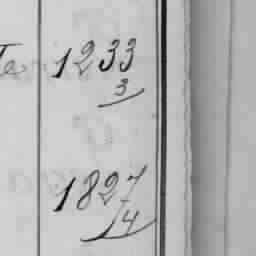 te 1233
3
1827
4